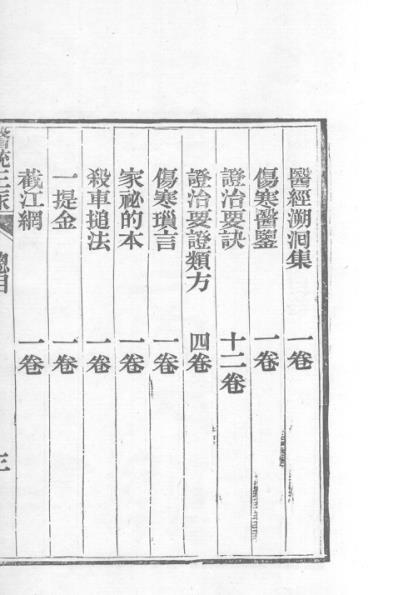 醫經溯洄集 一卷
傷寒醫鑒 一卷
證治要訣 十二卷
證治要證類方 四卷
傷寒瑣言 一卷
家祕的本 一卷
殺車搥法 一卷
一提金 一卷
截江網 一卷
總目
三